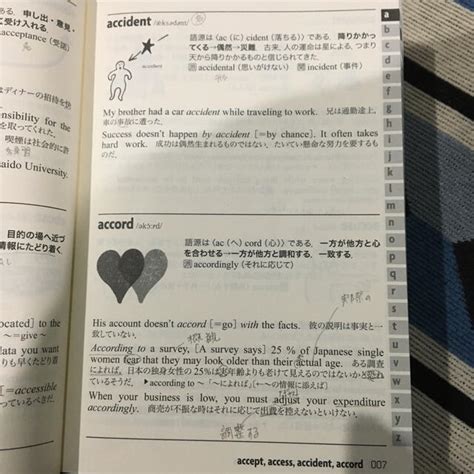 申し出・意見・
て受け入れる
acceptance (受諾)
accident /ǽksədənt/
語源は〈ac (に) cident (落ちる)〉である。降りかかっ
てくる→偶然→災難 古来、人の運命は星による、つまり
天から降りかかるものと信じられてきた。
accident
派 accidental (思いがけない) 関 incident (事件)
はディナーの招待を快
My brother had a car accident while traveling to work. 兄は通勤途上、
車の事故に遭った。
nsibility for the
を取ってくれた。
Success doesn't happen by accident [=by chance]. It often takes
喫煙は社会的に許
hard work. 成功は偶然生まれるものではない。たいてい懸命な努力を要するも
のだ。
kaido University.
accord /əkɔ́ːrd/
目的の場へ近づ
情報にたどり着く
語源は〈ac (へ) cord (心)〉である。一方が他方と心
を合わせる→一方が他方と調和する、一致する。
派 accordingly (それに応じて)
実際の
His account doesn't accord [=go] with the facts. 彼の説明は事実と一
致していない。
ocated] to the
〜=give〜
According to a survey, [A survey says] 25 % of Japanese single
data you want
women fear that they may look older than their actual age. ある調査
も早くたどり着
によれば、日本の独身女性の25%は実年齢よりも老けて見えるのではないかと恐れ
ているそうだ。 ▶according to〜「〜によれば」[←〜の情報に添えば]
[=accessible
When your business is, low, you must adjust your expenditure
っているべきだ。
accordingly. 商売が不振な時はそれに応じて出費を控えないといけない。
調整する
accept, access, accident, accord 007
a
b
c
d
e
f
g
h
i
j
k
l
m
n
o
p
q
r
s
t
u
v
w
x
y
z